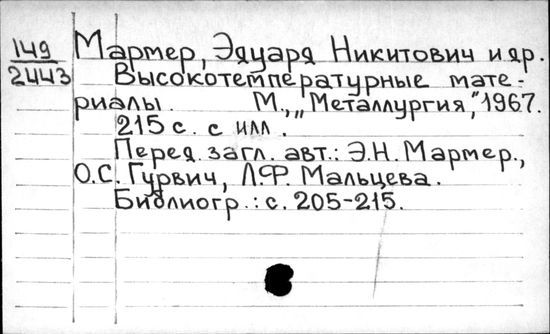 149
2443
Мармер, Эдуард Никитович и др.
Высокотемпературные мате-
риалы. М., „Металлургия", 1967.
215 с. с илл.
Перед загл. авт.: Э.Н. Мармер.,
О.С. Гурвич, Л.Ф. Мальцева.
Библиогр.: с. 205-215.